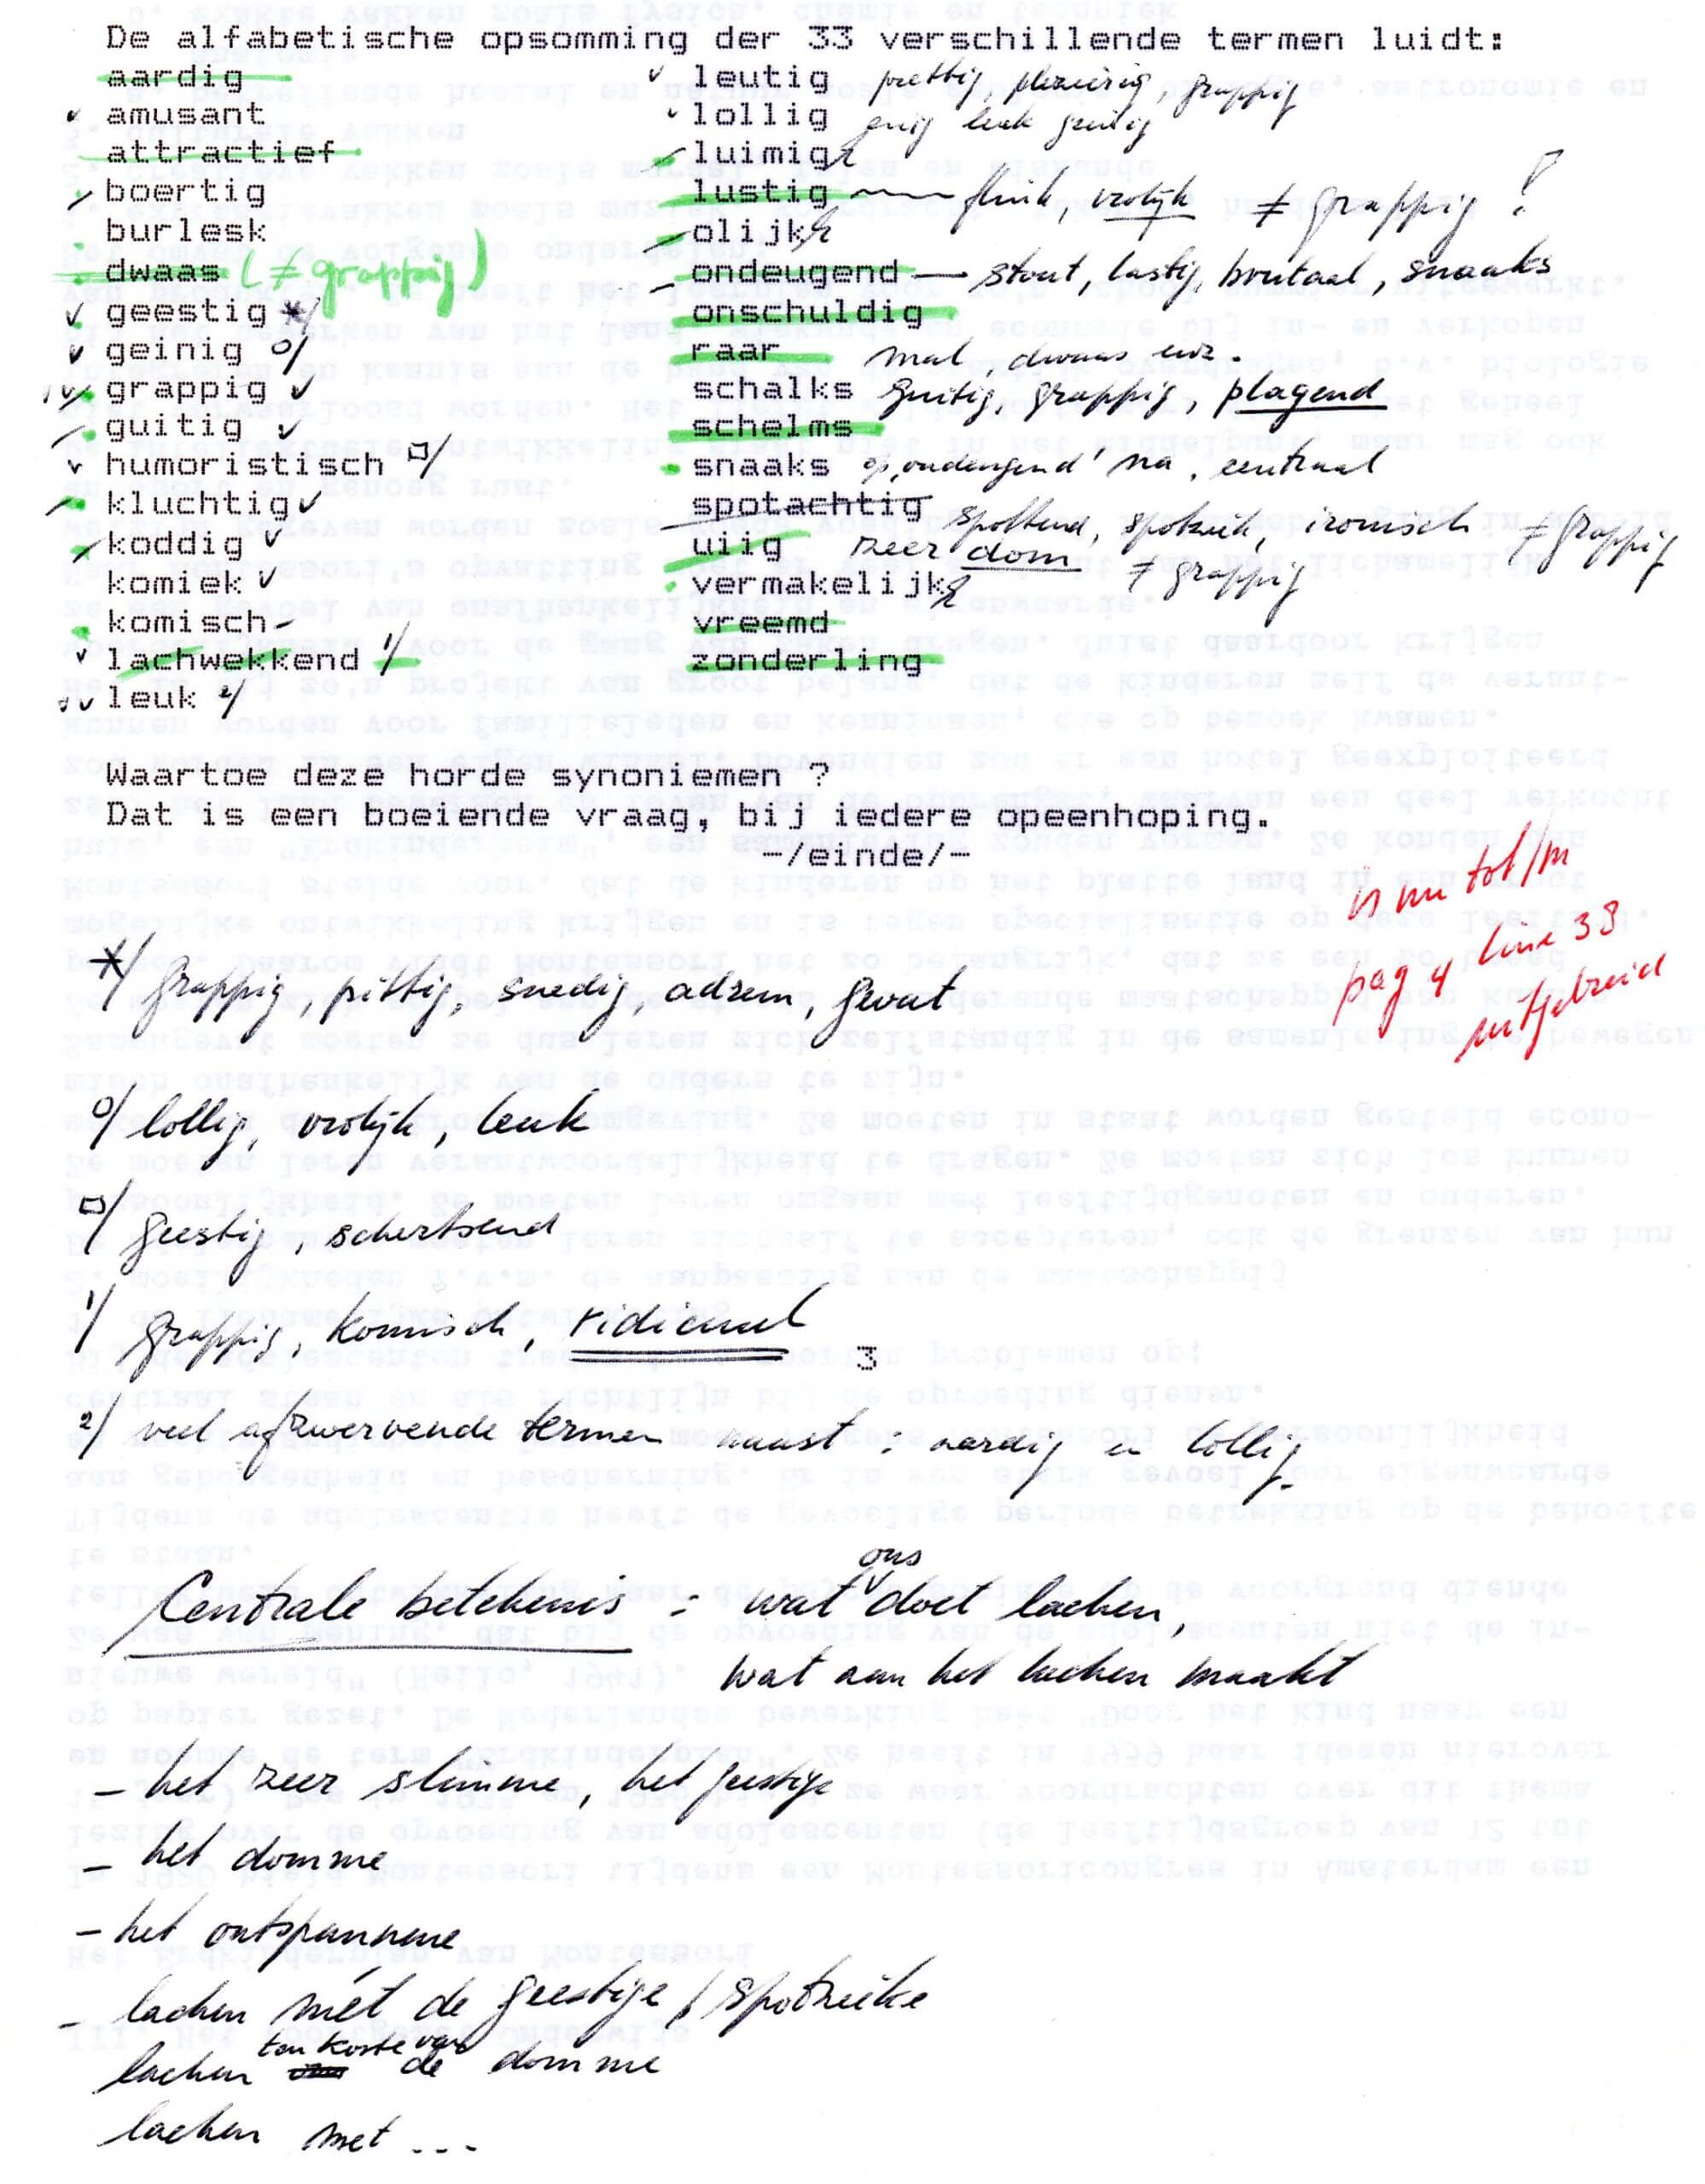 De alfabetische opsomming der 33 verschillende termen luidt:
aardig
amusant
attractief
boertig
burlesk
dwaas (≠ grappig)
geestig */
geinig o/
grappig ✓
guitig ✓
humoristisch □/
kluchtig ✓
koddig ✓
komiek ✓
komisch -
lachwekkend 1/
leuk 2/
leutig prettig, plezierig, grappig
lollig enig leuk geinig
luimig
lustig — flink, vrolijk ≠ grappig !
olijk
ondeugend — stout, lastig, brutaal, snaaks
onschuldig
raar mal, dwaas enz.
schalks guitig, grappig, plagend
schelms
snaaks op 'ondeugend' na, centraal
spotachtig spottend, spotziek, ironisch ≠ grappig
uiig zeer dom ≠ grappig
vermakelijk
vreemd
zonderling
Waartoe deze horde synoniemen ?
Dat is een boeiende vraag, bij iedere opeenhoping.
-/einde/-
is nu tot/m
pag 4 line 38
uitgebreid
*/ grappig, pittig, snedig, adrem, gevat
o/ lollig, vrolijk, leuk
□/ geestig, schertsend
1/ grappig, komisch, ridicuul
3
2/ veel afzwervende termen naast : aardig en lollig.
Centrale betekenis : wat ons doet lachen,
wat aan het lachen maakt
- het zeer slimme, het geestige
- het domme
- het ontspannene
- lachen mét de geestige / spotzieke
lachen ten koste van de domme
lachen met ...